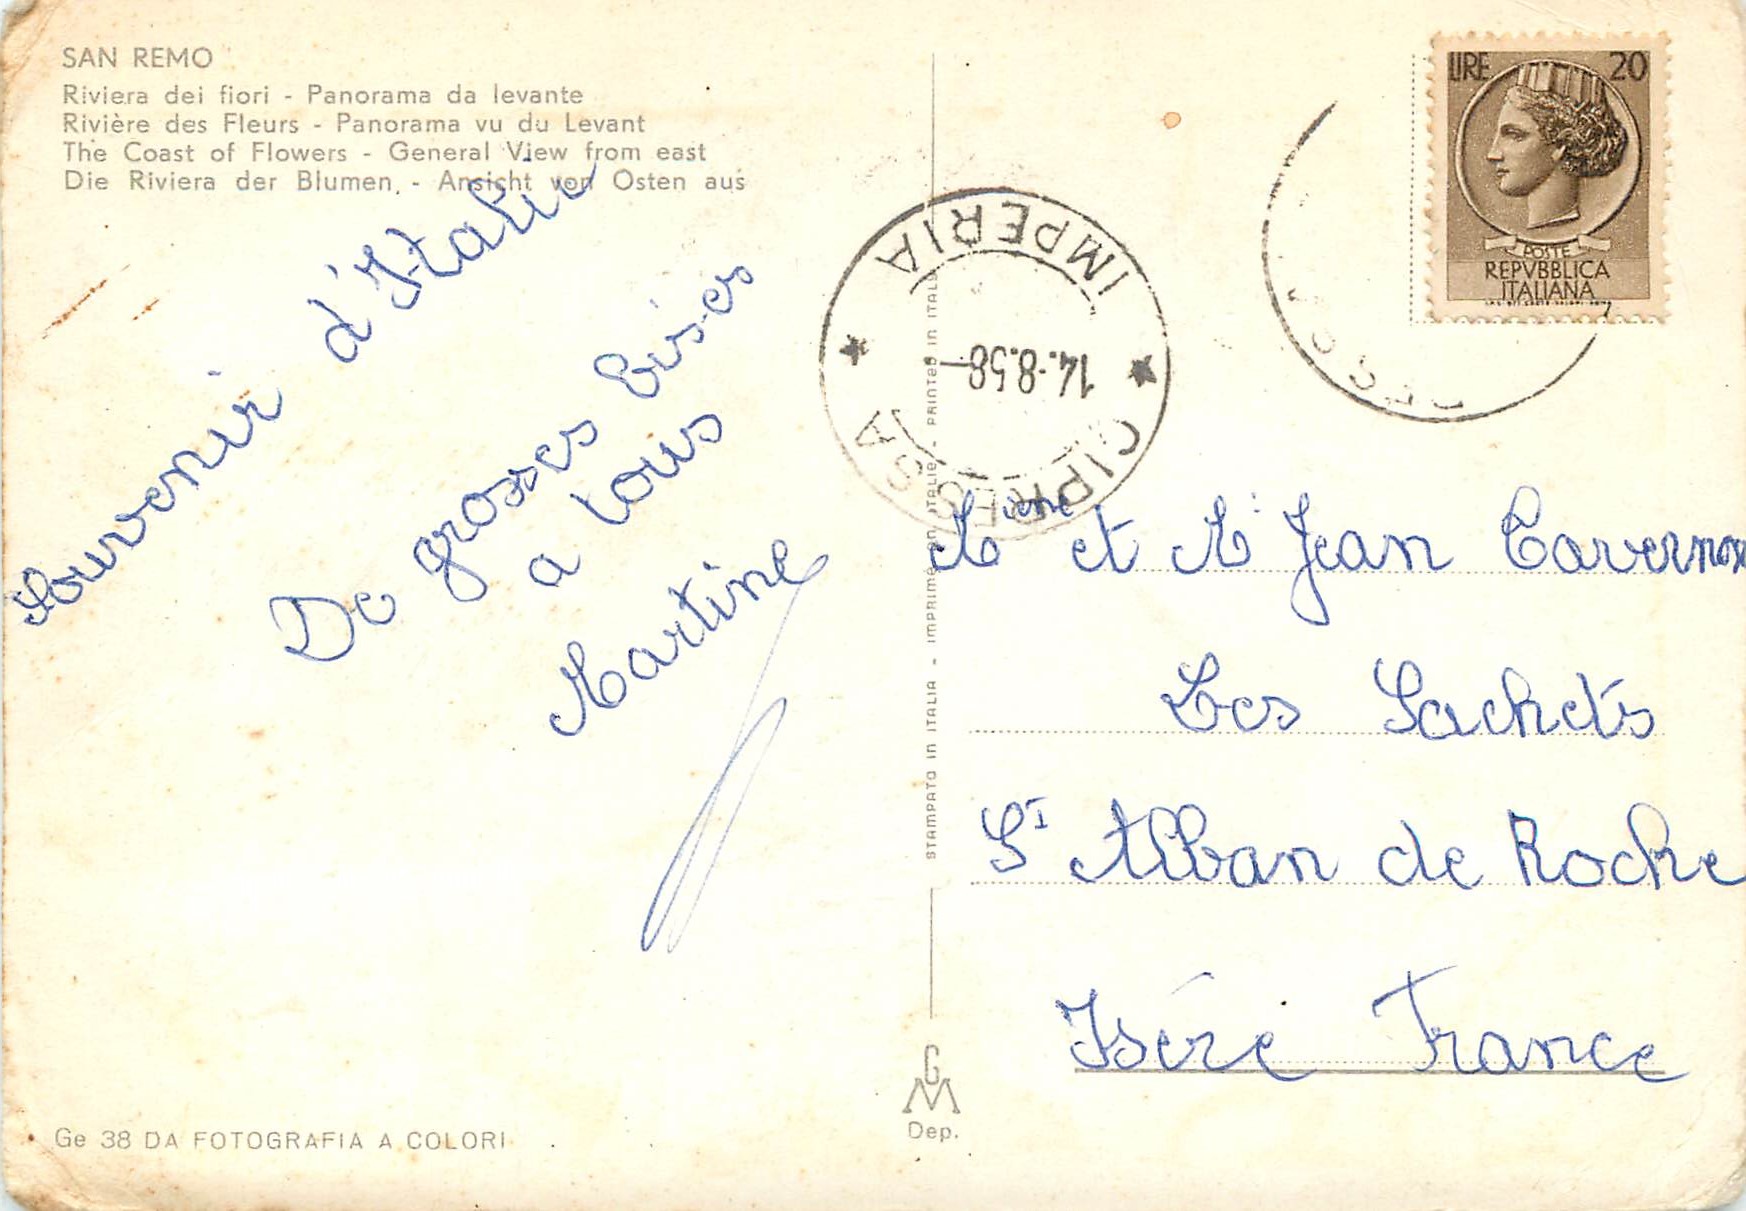 SAN REMO
Riviera dei fiori - Panorama da levante
Rivière des Fleurs - Panorama vu du Levant
The Coast of Flowers - General View from east
Die Riviera der Blumen. - Ansicht von Osten aus
Souvenir d'Italie
De grosses bises
a tous
Martine
Ge 38 DA FOTOGRAFIA A COLORI
STAMPATO IN ITALIA - IMPRIMÉ EN ITALIE - PRINTED IN ITALY
GM
Dep.
IMPERIA
14.8.58
CIPRESSA
LIRE 20
POSTE
REPVBBLICA
ITALIANA
et M. Jean
Les Sachets
St Alban de Roche
Isère France